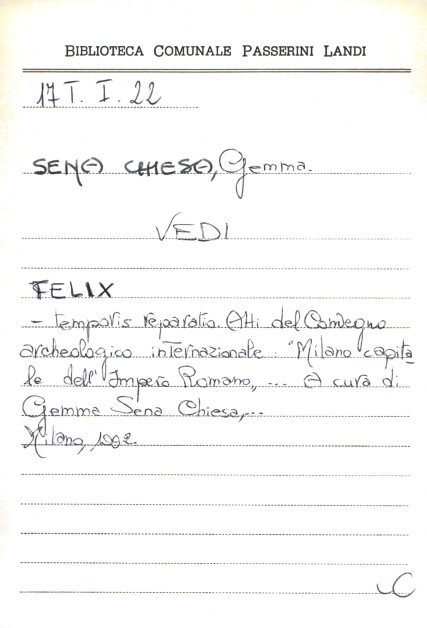 BIBLIOTECA COMUNALE PASSERINI LANDI
17 T. I. 22
SENA CHIESA, Gemma.
VEDI
FELIX
- temporis reparatio. Atti del Convegno
archeologico internazionale "Milano capita
le dell'Impero Romano, ... A cura di
Gemma Sena Chiesa,...
Milano, 1992.